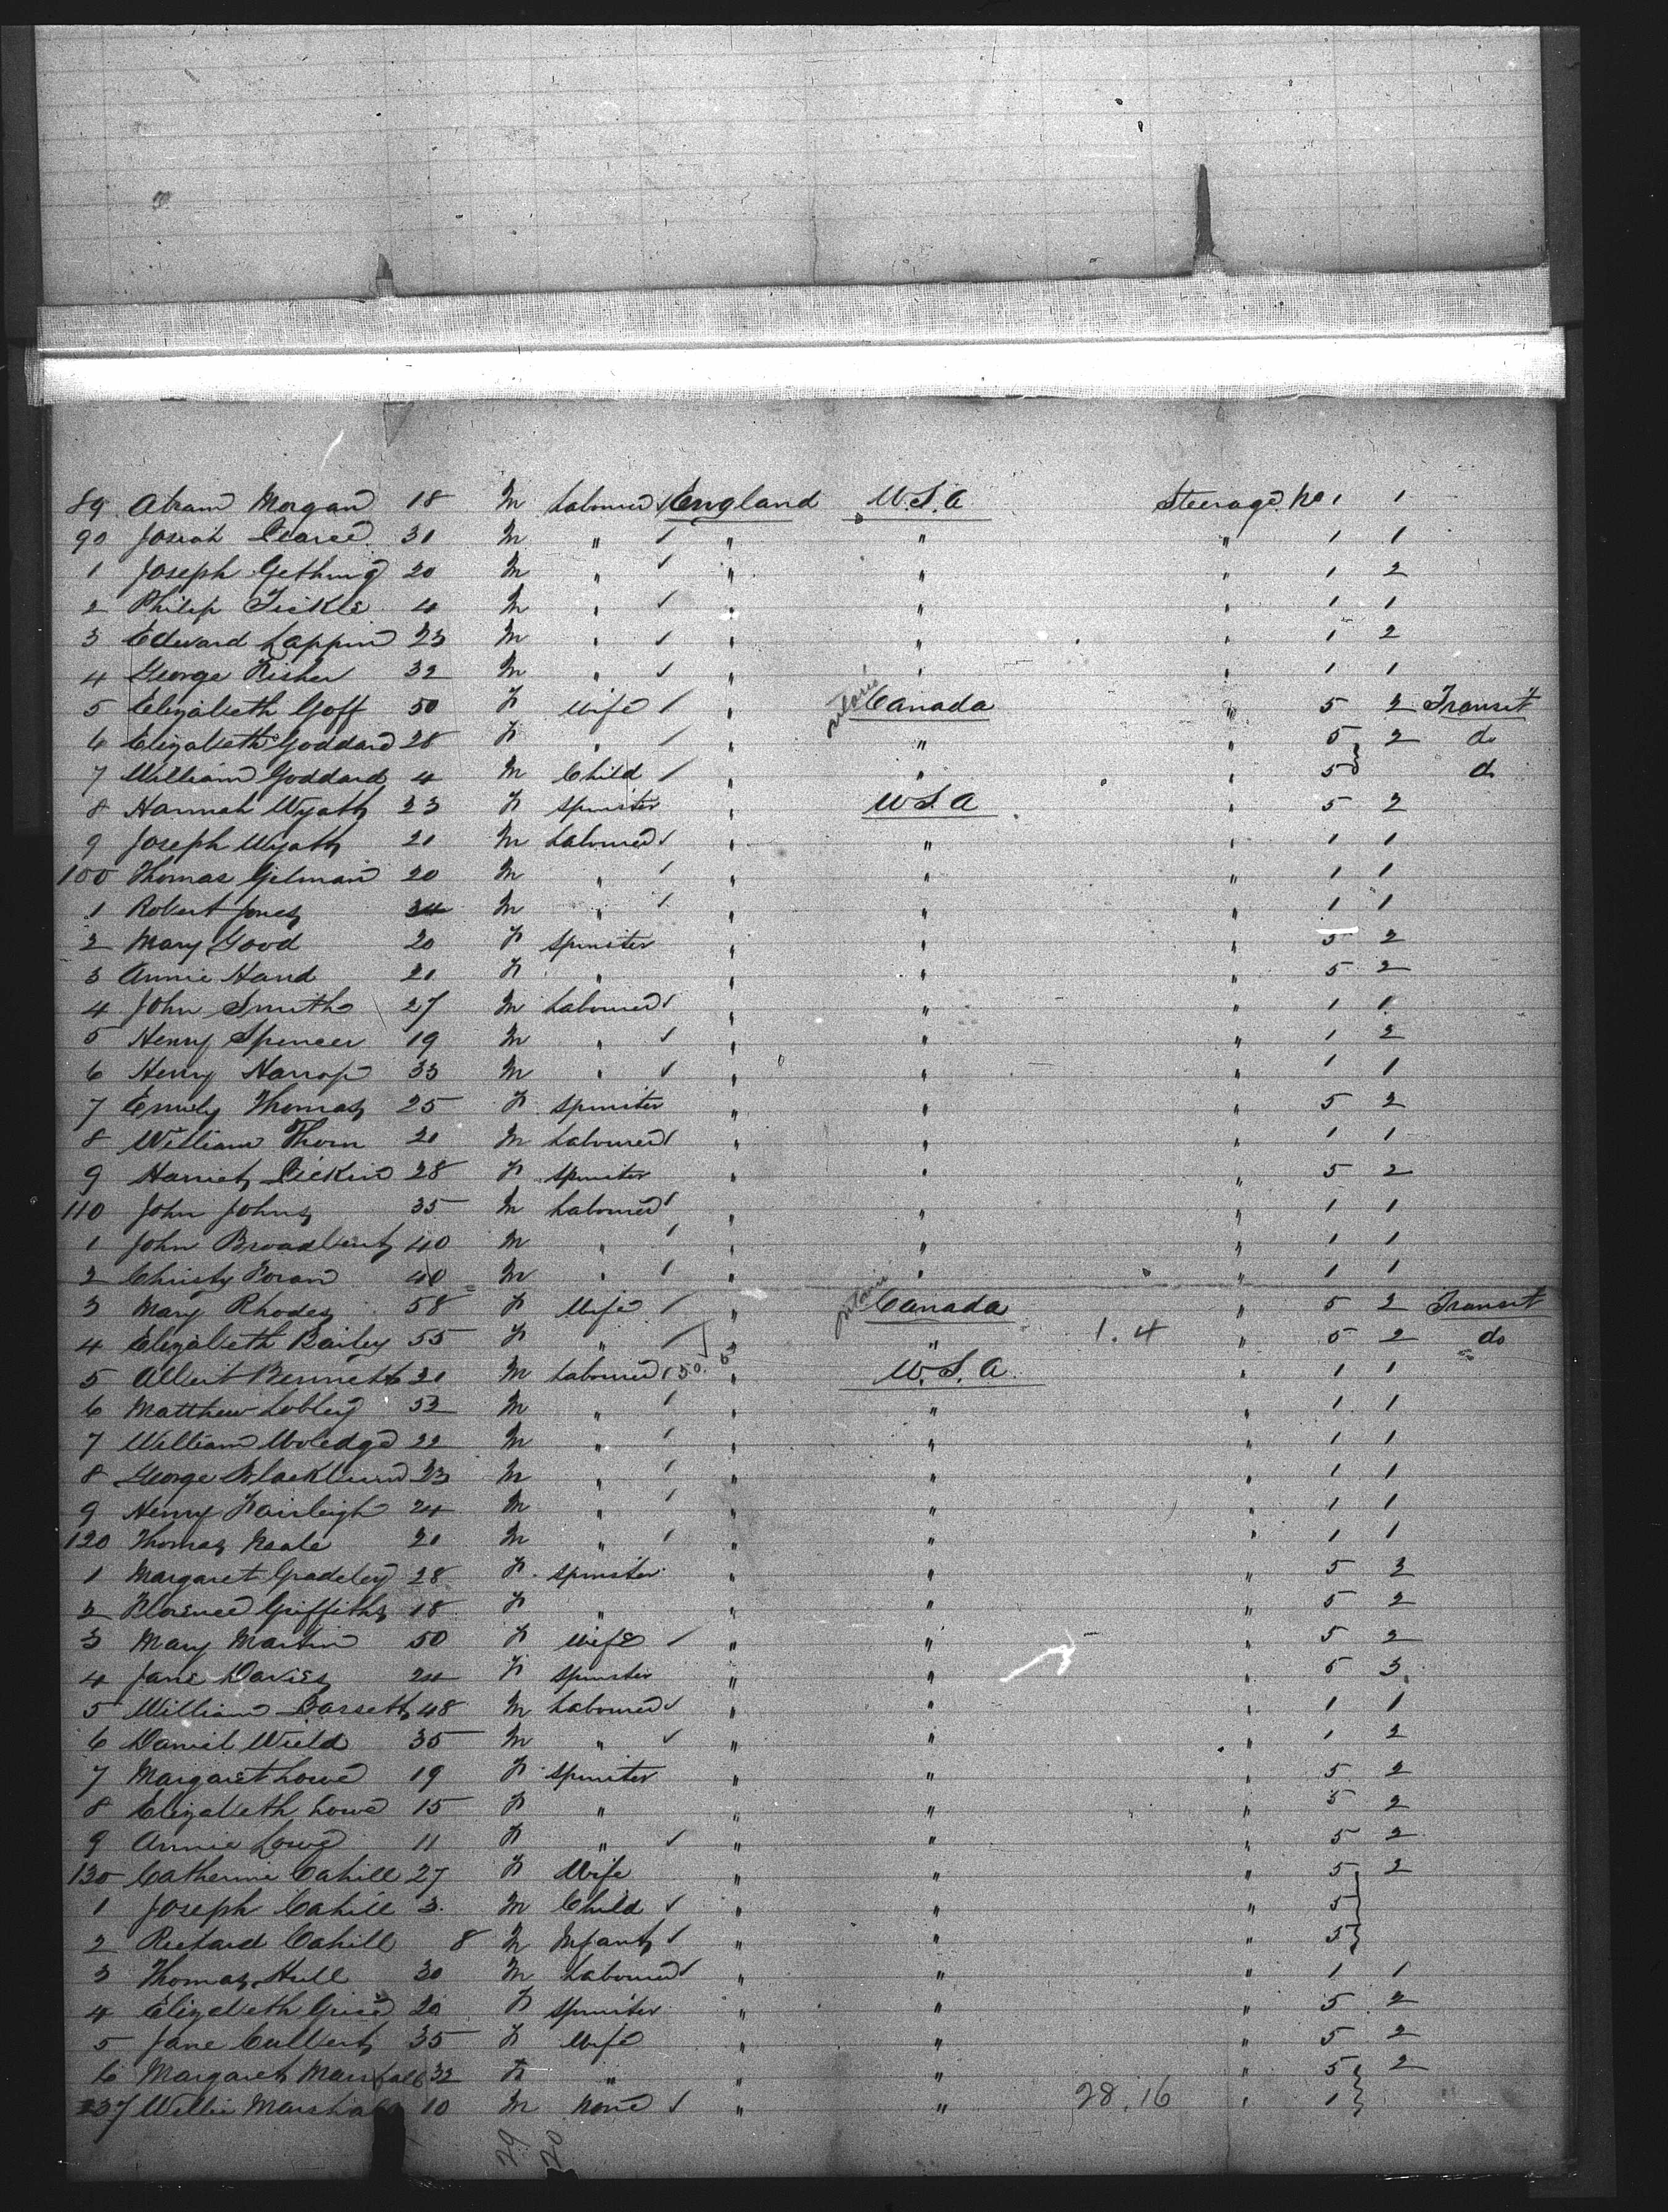 89 Abram Morgan 18 M Labourer England U.S.A Steerage No 1 1
90 Josiah Pearce 30 M " " " " 1 1
1 Joseph Gething 20 M " " " " 1 2
2 Philip Tickle 4 M " " " " 1 1
3 Edward Lappin 23 M " " " " 1 2
4 George Fisher 32 M " " " " 1 1
5 Elizabeth Goff 50 F Wife " Canada " 5 2 Transit
6 Elizabeth Goddard 28 F " " " " 5 2 do
7 William Goddard 4 M Child " " " 5 do
8 Hannah Wyatt 23 F Spinster " U.S.A " 5 2
9 Joseph Wyatt 21 M Labourer " " " 1 1
100 Thomas Gilman 20 M " " " " 1 1
1 Robert Jones 34 M " " " " 1 1
2 Mary Good 20 F Spinster " " " 5 2
3 Annie Hand 21 F " " " " 5 2
4 John Smith 27 M Labourer " " " 1 1
5 Henry Spencer 19 M " " " " 1 2
6 Henry Harrop 33 M " " " " 1 1
7 Emily Thomas 25 F Spinster " " " 5 2
8 William Thorn 21 M Labourer " " " 1 1
9 Harriet Dickin 28 F Spinster " " " 5 2
110 John Johns 35 M Labourer " " " 1 1
1 John Broadbent 40 M " " " " 1 1
2 Christy Foran 40 M " " " " 1 1
3 Mary Rhodes 58 F Wife " Canada " 5 2 Transit
4 Elizabeth Bailey 55 F " " " 1.4 " 5 2 do
5 Albert Bennett 21 M Labourer 50. " U.S.A " 1 1
6 Matthew Lobley 53 M " " " " 1 1
7 William Woledge 22 M " " " " 1 1
8 George Blackburn 23 M " " " " 1 1
9 Henry Fairleigh 24 M " " " " 1 1
120 Thomas Neale 21 M " " " " 1 1
1 Margaret Gradeley 28 F Spinster " " " 5 2
2 Florence Griffiths 18 F " " " " 5 2
3 Mary Martin 50 F Wife " " " 5 2
4 Jane Davies 24 F Spinster " " " 5 3
5 William Bassett 48 M Labourer " " " 1 1
6 Daniel Wield 35 M " " " " 1 2
7 Margaret Lowe 19 F Spinster " " " 5 2
8 Elizabeth Lowe 15 F " " " " 5 2
9 Annie Lowe 11 F " " " " 5 2
130 Catherine Cahill 27 F Wife " " " 5 2
1 Joseph Cahill 3 M Child " " " 5
2 Richard Cahill 8 M Infant " " " 5
3 Thomas Hull 30 M Labourer " " " 1 1
4 Elizabeth Grice 20 F Spinster " " " 5 2
5 Jane Culbert 35 F Wife " " " 5 2
6 Margaret Marshall 32 F " " " " 5 2
137 Willie Marshall 10 M None " " 28.16 " 1
29 20